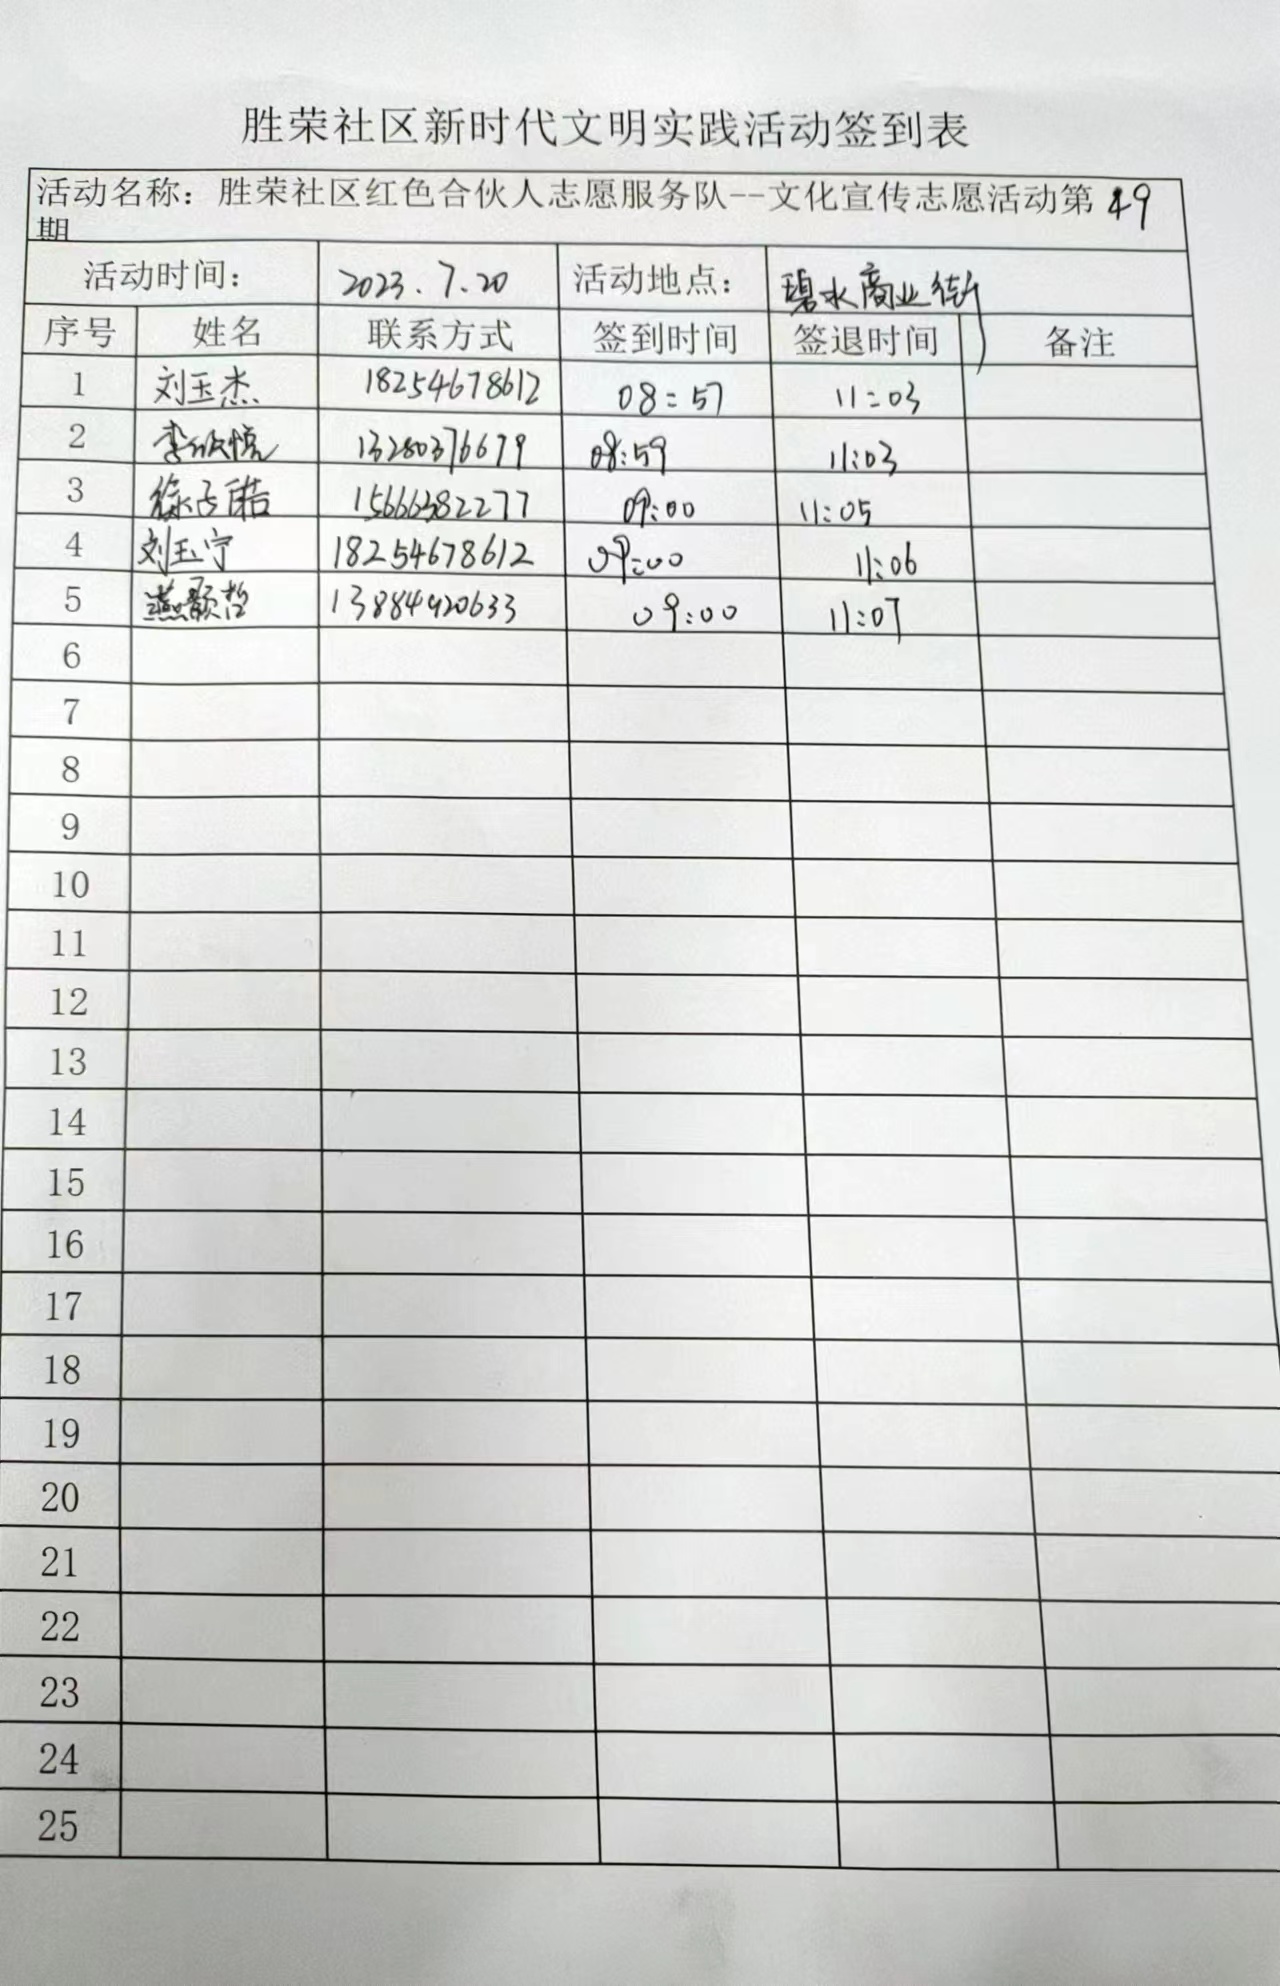 胜荣社区新时代文明实践活动签到表
活动名称：胜荣社区红色合伙人志愿服务队--文化宣传志愿活动第49
期
活动时间： 2023.7.20 活动地点： 碧水商业街
序号 姓名 联系方式 签到时间 签退时间 备注
1 刘玉杰 18254678612 08:57 11:03
2 李欣悦 13280376679 08:59 11:03
3 徐子皓 15666382277 09:00 11:05
4 刘玉宁 18254678612 09:00 11:06
5 燕颢哲 13884920633 09:00 11:07
6
7
8
9
10
11
12
13
14
15
16
17
18
19
20
21
22
23
24
25